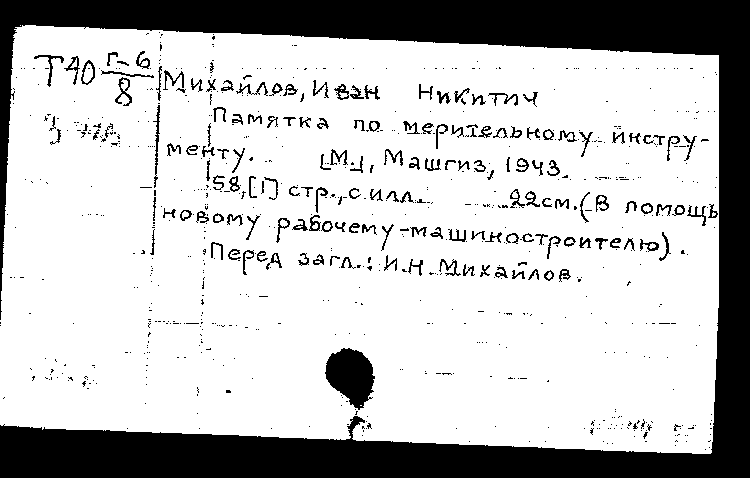 Т40 г-6/8
Михайлов, Иван Никитич
Памятка по мерительному инстру-
менту. [М.], Машгиз, 1943.
58,[1] стр., с илл. 22см. (В помощь
новому рабочему-машиностроителю).
Перед загл.: И.Н. Михайлов.